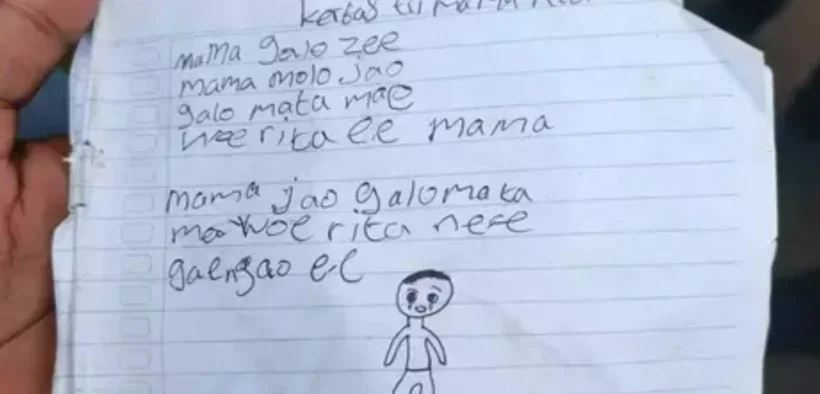 kertas tii mama
mama galo zee
mama molo jao
galo mata mae
woe rita ee mama
mama jao galo mata
mae woe rita nee
gae ngao ee